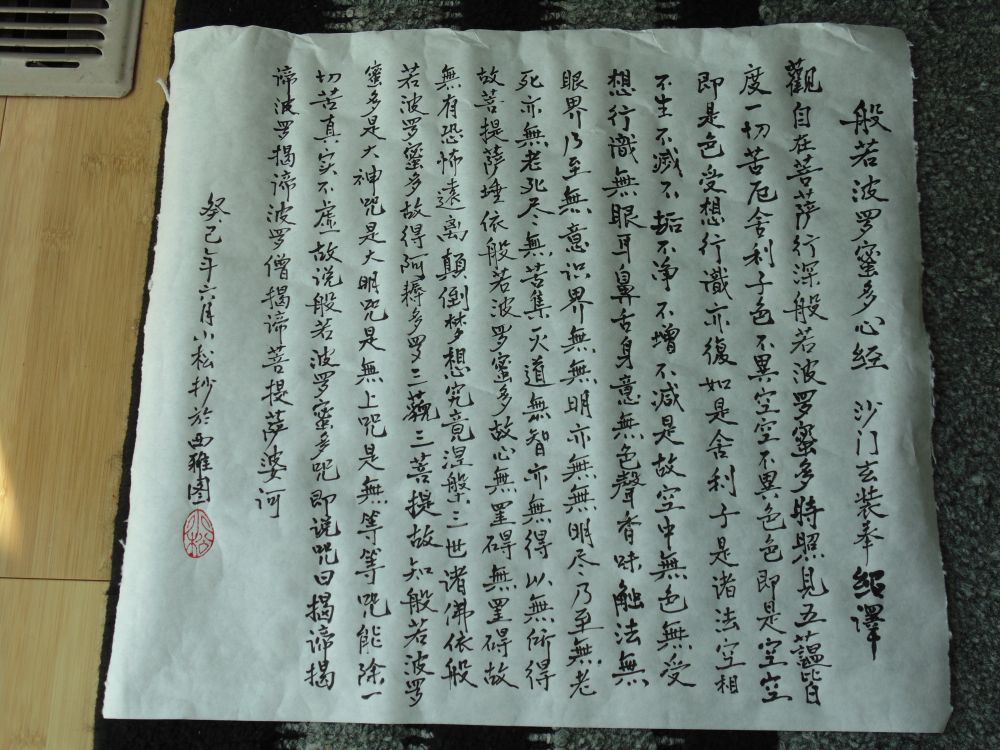 般若波罗蜜多心经 沙门玄装奉 紹譯
觀自在菩萨行深般若波罗蜜多時照見五蘊皆
度一切苦厄舍利子色不異空空不異色色即是空空
即是色受想行識亦復如是舍利子是诸法空相
不生不滅不垢不净不增不减是故空中無色無受
想行識無眼耳鼻舌身意無色聲香味触法無
眼界乃至無意识界無無明亦無無明尽乃至無老
死亦無老死尽無苦集灭道無智亦無得以無所得
故菩提萨埵依般若波罗蜜多故心無罣碍無罣碍故
無有恐怖遠离顛倒梦想究竟涅槃三世诸佛依般
若波罗蜜多故得阿耨多罗三藐三菩提故知般若波罗
蜜多是大神咒是大明咒是無上咒是無等等咒能除一
切苦真实不虚故说般若波罗蜜多咒即说咒曰揭谛揭
谛波罗揭谛波罗僧揭谛菩提萨婆诃
癸巳年六月小松抄於西雅图
小松